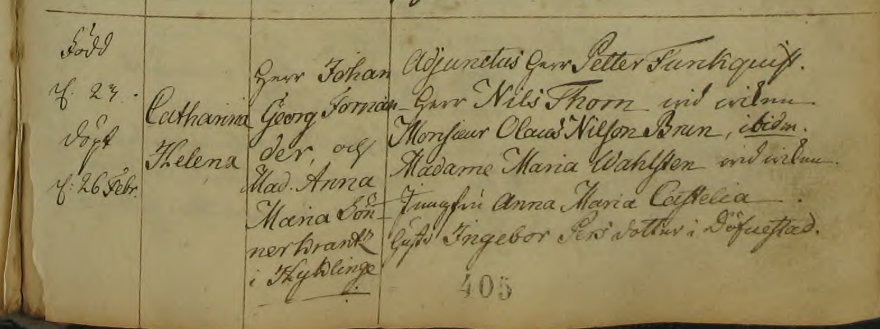 Född
d. 23.
döpt
d. 26 Febr.
Catharina
Helena
Herr Johan
Georg Forman-
der, och
Mad. Anna
Maria Sön-
nerkrantz
i Kyklinge
Adjunctus Herr Petter Funkquist.
Herr Nils Thom
Monsieur Olaus Nilsson Brun, ibidm.
Madame Maria Wahlsten
Jungfru Anna Maria Castelia
Hustr. Ingebor Pers dotter i Döfvestad.
405